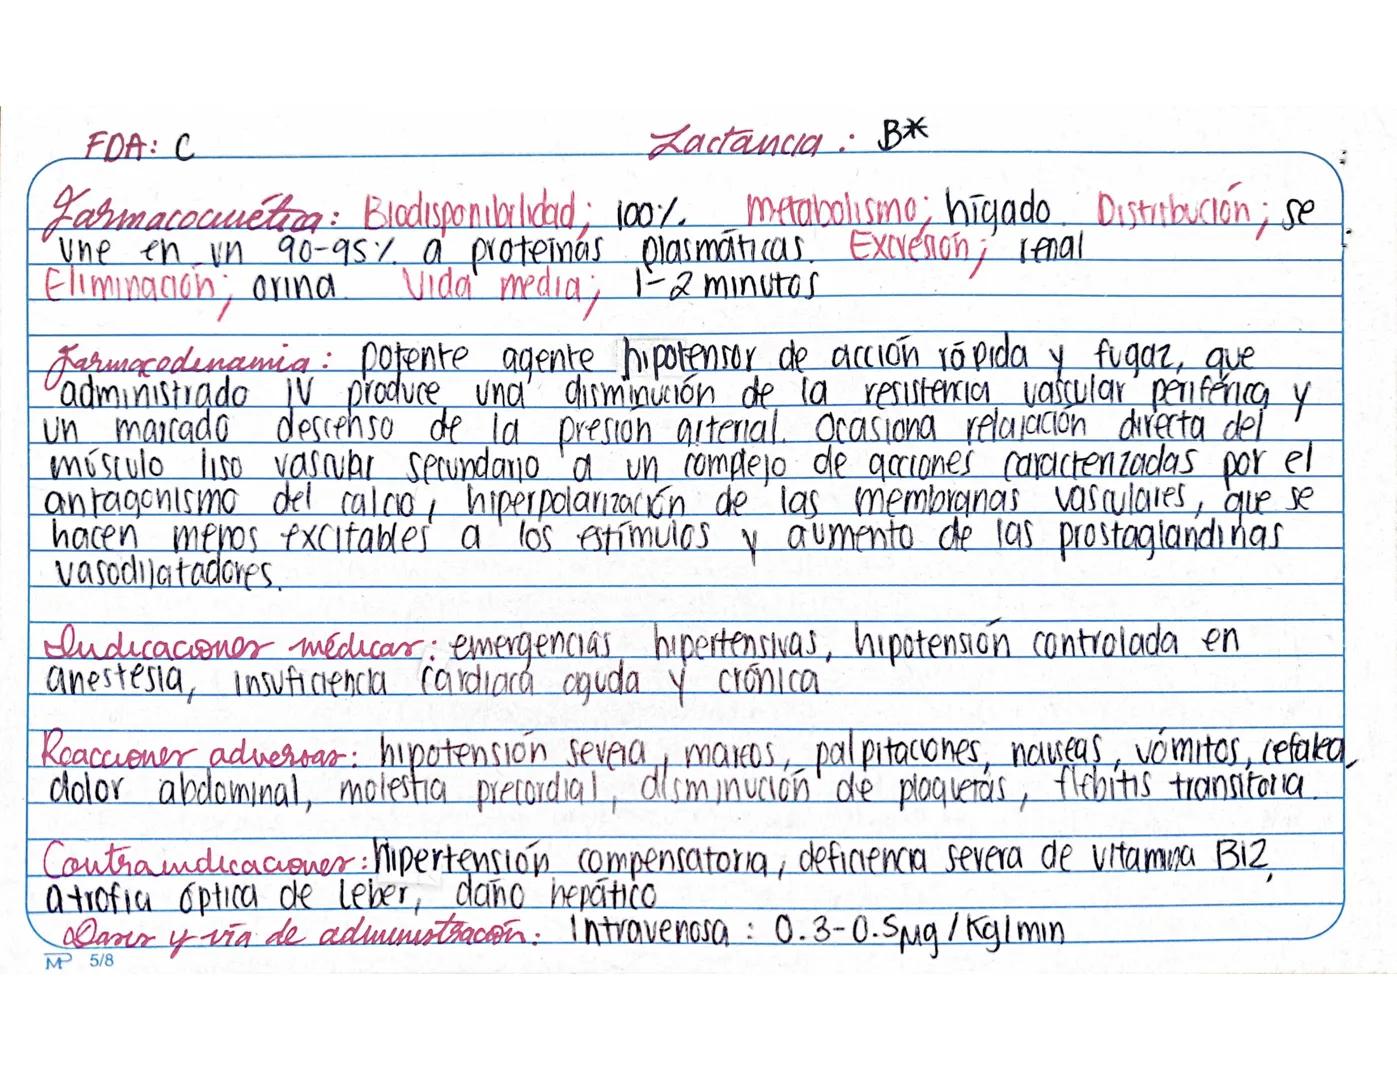 FDA: C Lactancia: B*
Farmacocinética: Biodisponibilidad; 100%. Metabolismo; hígado. Distribución; se
une en un 90-95% a proteínas plasmáticas. Excresión; renal
Eliminación; orina. Vida media; 1-2 minutos
Farmacodinamia: potente agente hipotensor de acción rápida y fugaz, que
administrado IV produce una disminución de la resistencia vascular periférica y
un marcado descenso de la presión arterial. Ocasiona relajación directa del
músculo liso vascular secundario a un complejo de acciones caracterizadas por el
antagonismo del calcio, hiperpolarización de las membranas vasculares, que se
hacen menos excitables a los estímulos y aumento de las prostaglandinas
vasodilatadores.
Indicaciones médicas: emergencias hipertensivas, hipotensión controlada en
anestesia, insuficiencia cardiaca aguda y crónica
Reacciones adversas: hipotensión severa, mareos, palpitaciones, nauseas, vómitos, cefalea,
dolor abdominal, molestia precordial, disminución de plaquetas, flebitis transitoria.
Contraindicaciones: hipertensión compensatoria, deficiencia severa de vitamina B12,
atrofia óptica de Leber, daño hepático
Dosis y vía de administración: Intravenosa: 0.3-0.5 µg/Kg/min
MP 5/8